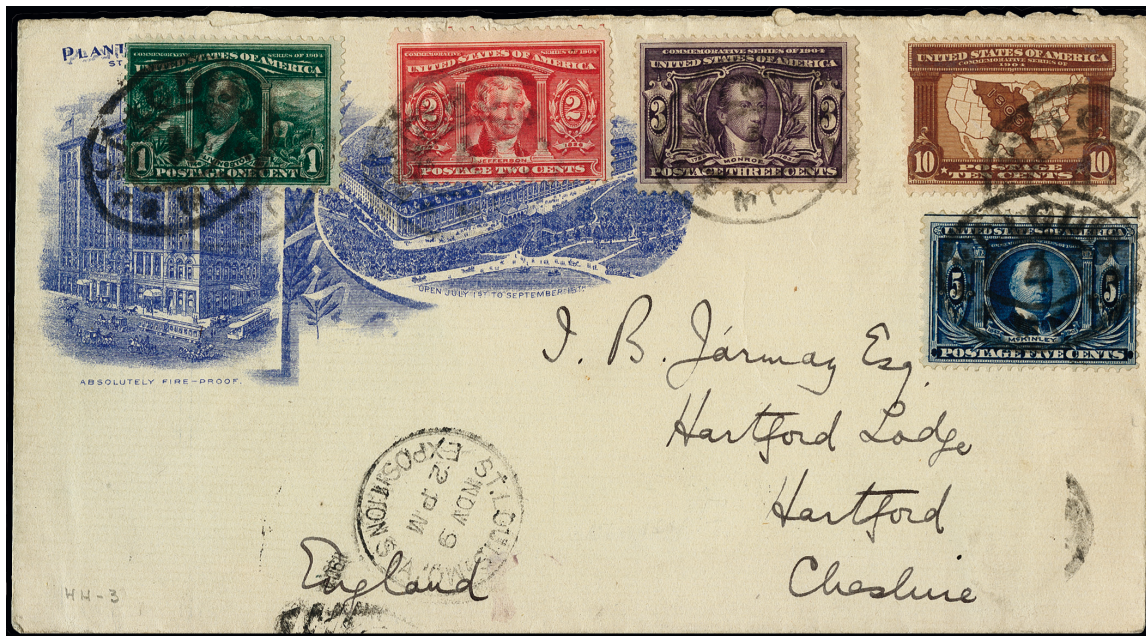 PLANT
ST.
COMMEMORATIVE SERIES OF 1904
UNITED STATES OF AMERICA
1 1
POSTAGE ONE CENT
COMMEMORATIVE SERIES OF 1904
UNITED STATES OF AMERICA
2 2
JEFFERSON
POSTAGE TWO CENTS
COMMEMORATIVE SERIES OF 1904
UNITED STATES OF AMERICA
3 3
MONROE
POSTAGE THREE CENTS
UNITED STATES OF AMERICA
COMMEMORATIVE SERIES OF
1904
1803
10 POSTAGE 10
TEN CENTS
UNITED STATES OF AMERICA
5 5
MCKINLEY
POSTAGE FIVE CENTS
OPEN JULY 1ST TO SEPTEMBER 15TH
ABSOLUTELY FIRE-PROOF.
J. B. Jármay Esq.
Hartford Lodge
Hartford
Cheshire
England
ST. LOUIS, MO.
EXPOSITION
NOV 9
2 PM
HH-3